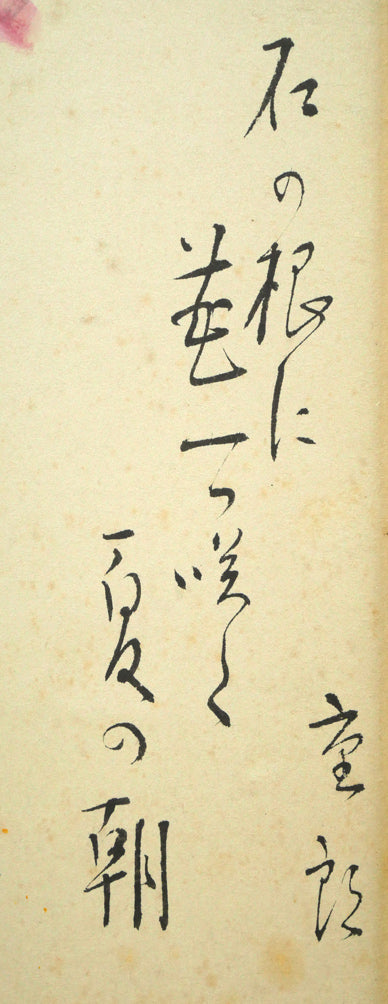 石の根に
一つ咲く
夏の朝
童郎